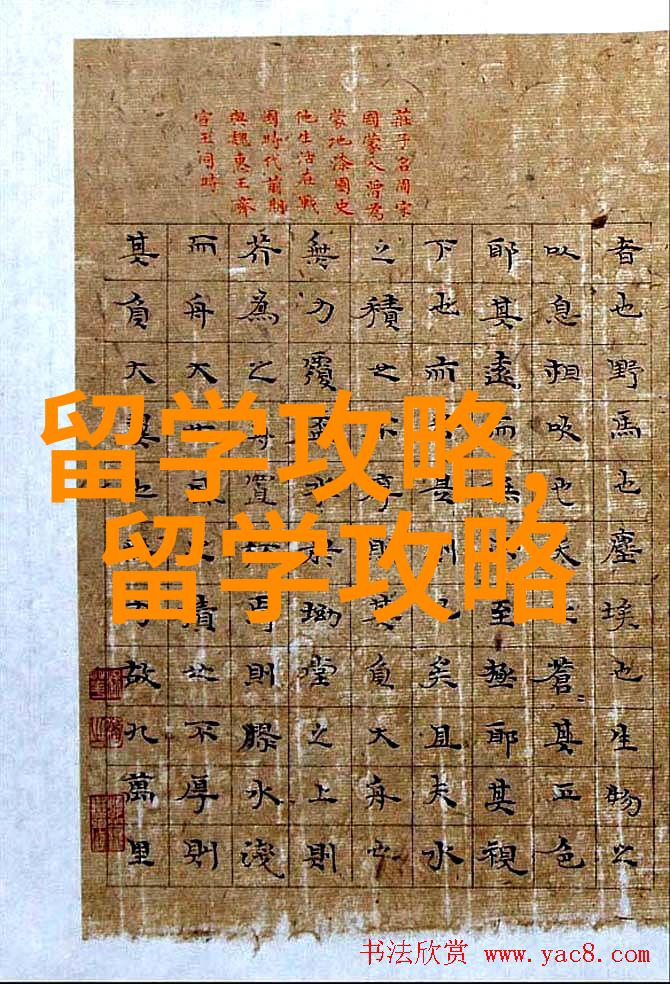 莊子名周宋
國蒙人曾為
蒙地漆園史
他生活在戰
國時代前期
與魏惠王齊
宣王同時
者也野馬也塵埃也生物之
以息相吹也天蒼〻其正色
耶其遠而無所至極耶其視
下也而若是則已矣且夫水
之積也不厚則其負大舟也
無力覆盃水於坳堂之上則
芥為之舟置杯焉則膠水淺
而舟大也風之積也不厚則
其負大翼也無力故九萬里
留学攻略,
留学攻略
书法欣赏 www.yac8.com